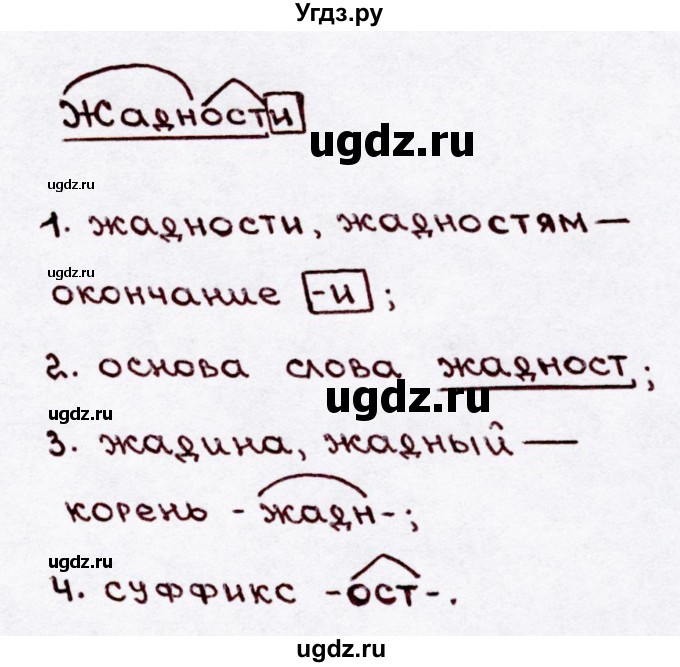 Угдз.ру
Жадности
ugdz.ru
ugdz.ru
1. жадности, жадностям —
ugdz.ru
окончание -и ;
2. основа слова жадност ;
ugdz.ru
ugdz.ru
3. жадина, жадный —
корень - жадн - ;
ugdz.ru
4. суффикс - ост - .
ugdz.ru